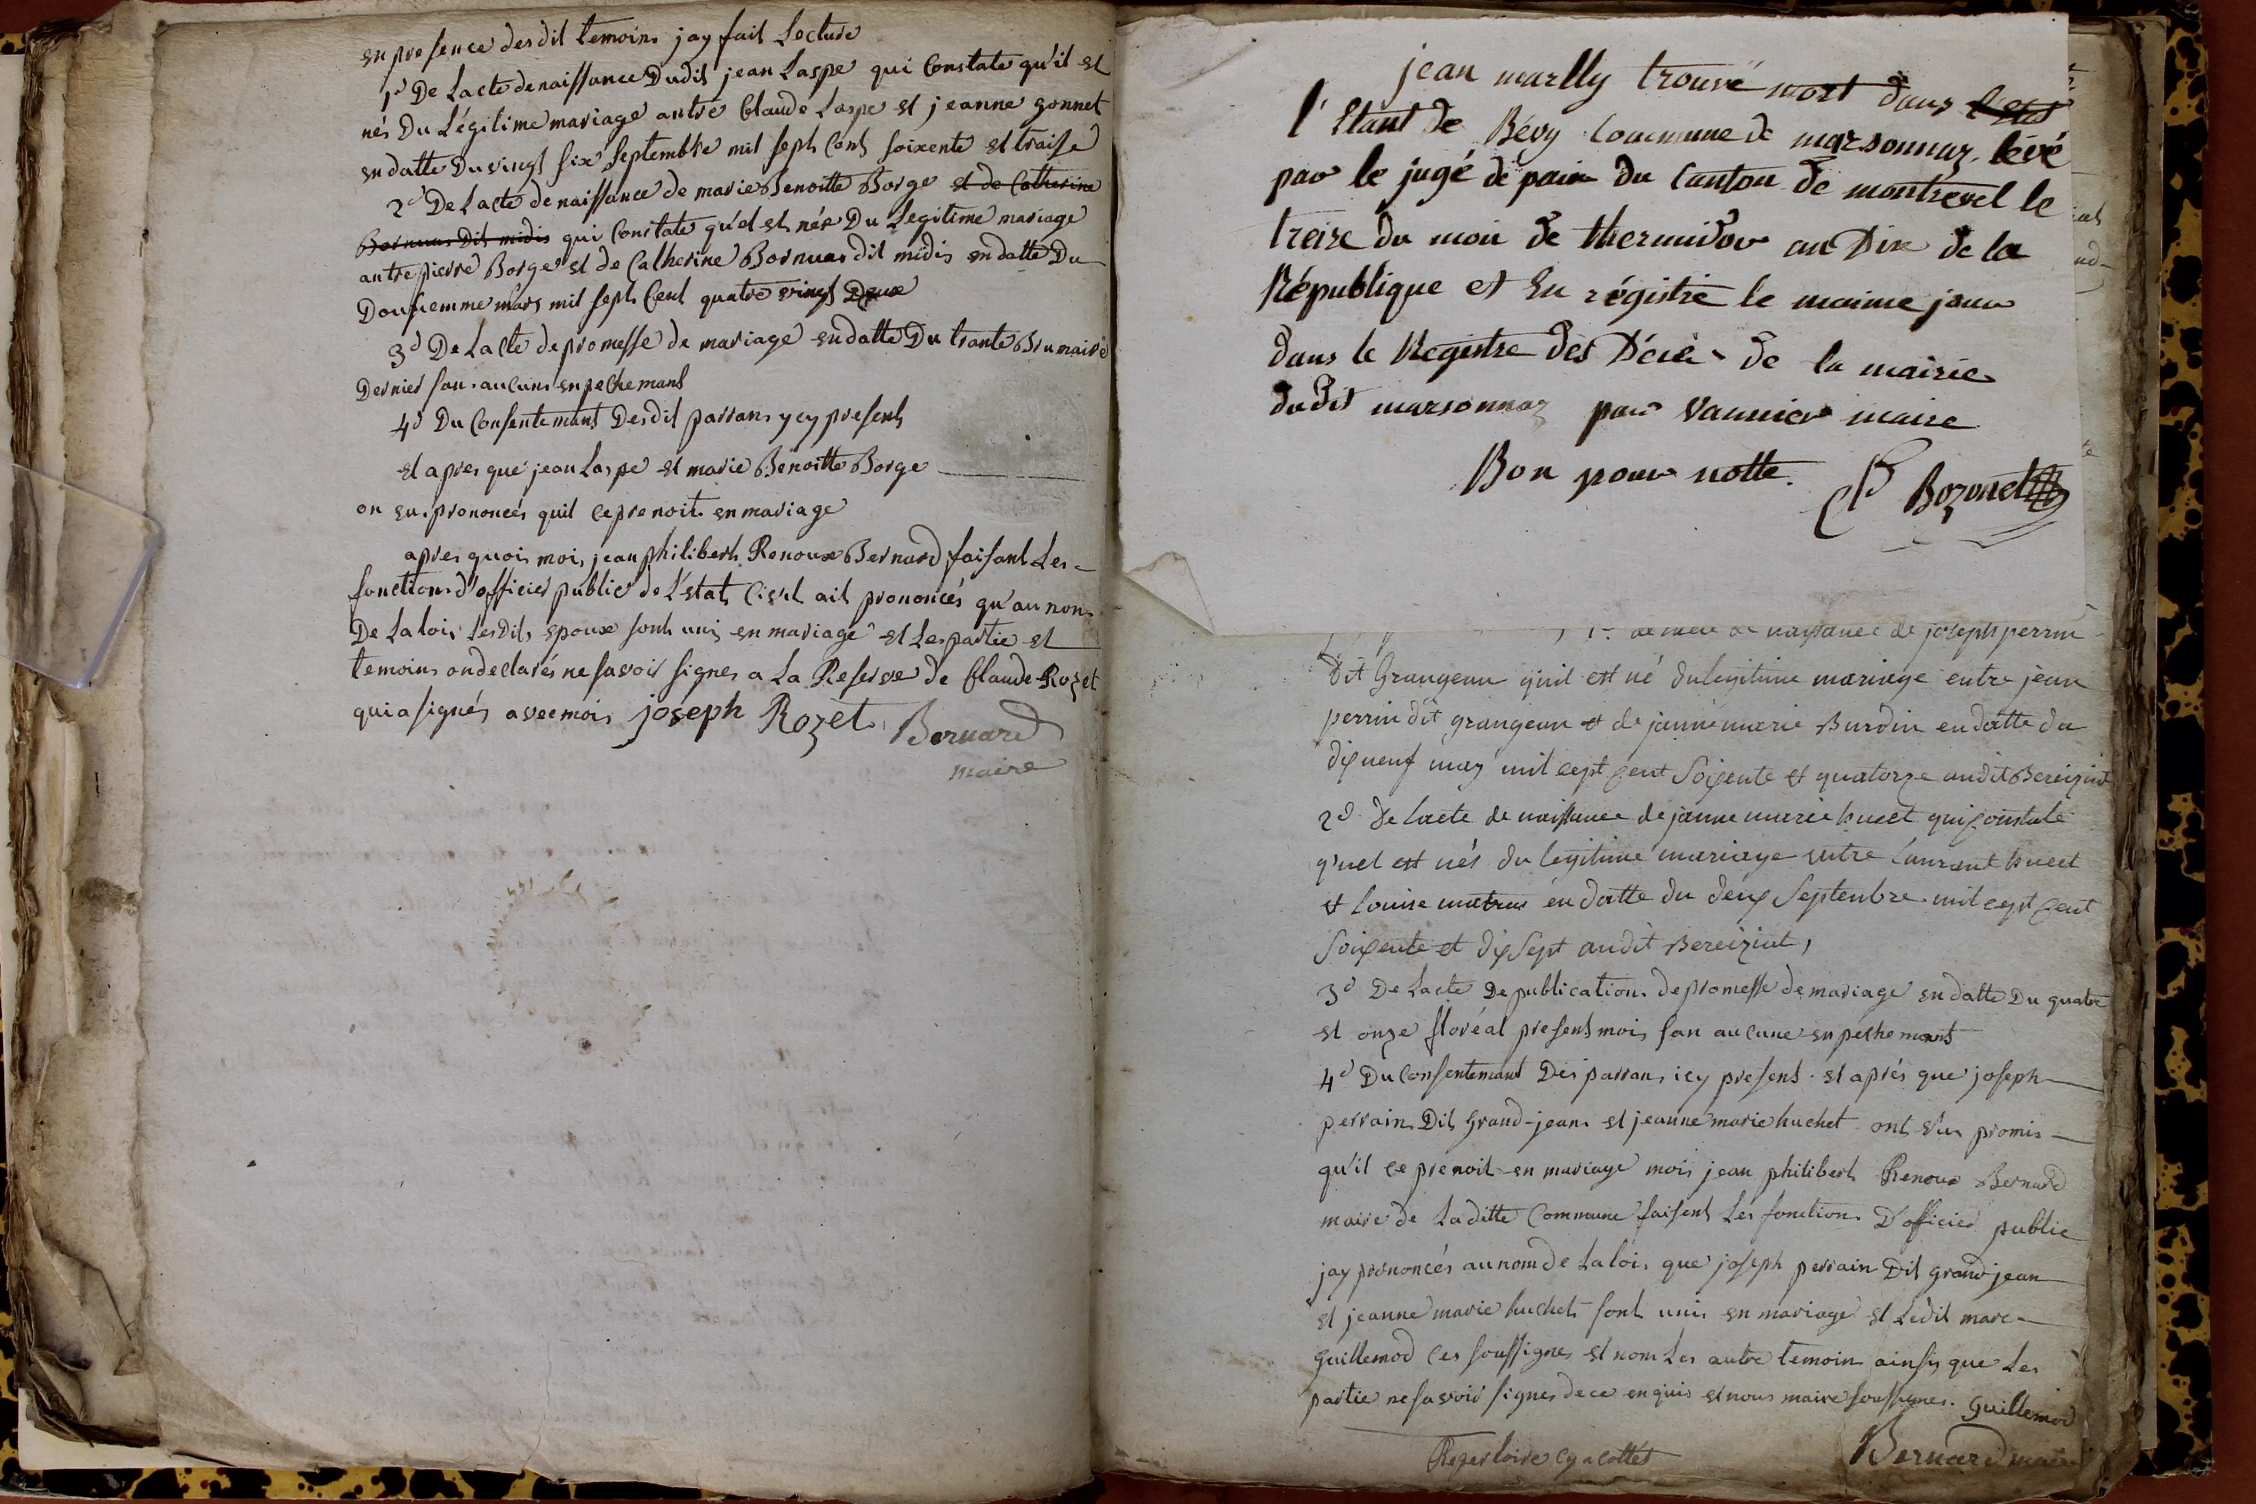 en presence desdit temoins jay fait Lecture
1.° De Lacte de naissance Dudit jean Laspe qui Constate qu'il est
nés Du Légitime mariage antre Claude Laspe et jeanne gonnet
en datte Du vingt six Septembre mil sept Cent soixente et traise
2.° De Lacte de naissance de marie Benoitte Borge et de Catherine
Bornuas Dit midis qui Constate qu'el est née Du Legitime mariage
antre pierre Borge et de Catherine Bornuas dit midis en datte Du
Dousiemme mars mil sept Cent quatre vingt Deux
3.° De Lacte de promesse de mariage en datte Du trante Brumaire
Dernier sans aucuns enpechemant
4.° Du Consentemant Desdit parrans ycy present
et apres que jean Laspe et marie Benoitte Borge
on eu prononcés quil ce prenoit en mariage
apres quois mois jean philibert Renoux Bernard faisant Les
fonctions d'officier public de L'état Civil ait prononcés qu'au nom
De La lois Lesdits epoux sont unis en mariage et Les partie et
temoins on declarés ne savoir signer a La Reserve de Claude Rozet
qui a signés avec mois joseph Rozet Bernard
maire
jean marlly trouvé mort dans l'est
l'Etant de Bévy Commune de marsonnaz, levé
par le jugé de paix du Canton de montrevel le
treize du moi de thermidor an Dix de la
République et En régistré le maime jour
dans le Registre des Décè de la mairie
dudit marsonnaz par vannier maire
Bon pour notte. Cl B Bozonet
1.° de lacte de naissance de joseph perrin
dit Grangean quil est né du legitime mariage entre jean
perrin dit grangean et de janne marie Burdin en datte du
dix neuf may mil cept cent Soixente et quatorze audit Bereiziat
2.° De lacte de naissance de janne marie huect qui constate
q'uel est nés du legitime mariage entre laurent huect
et louise matras en datte du deux Septenbre mil cept cent
Soixente et dix Sept audit Bereiziat,
3.° De Lacte De publications de promesse de mariage en datte Du quatre
et onze floréal present mois san aucune enpechemant
4.° Du Consentemant Des parrans icy present et aprés que joseph
perrain Dit Grand-jean et jeanne marie huchet ont eus promis
qu'il ce prenoit en mariage mois jean philibert Renoux Bernard
maire de La ditte Commune faisent Les fonctions D'officier public
jay prononcés au nom de La lois que joseph perrain Dit grand jean
et jeanne marie huchet sont unis en mariage et Ledit marc
Guillemod ces soussignes et nom Les autre temoin ainsy que Les
partie ne savoir signer de ce enquis et nous maire soussignes. Guillemod
Repertoire Cy a Cottes
Bernard maire